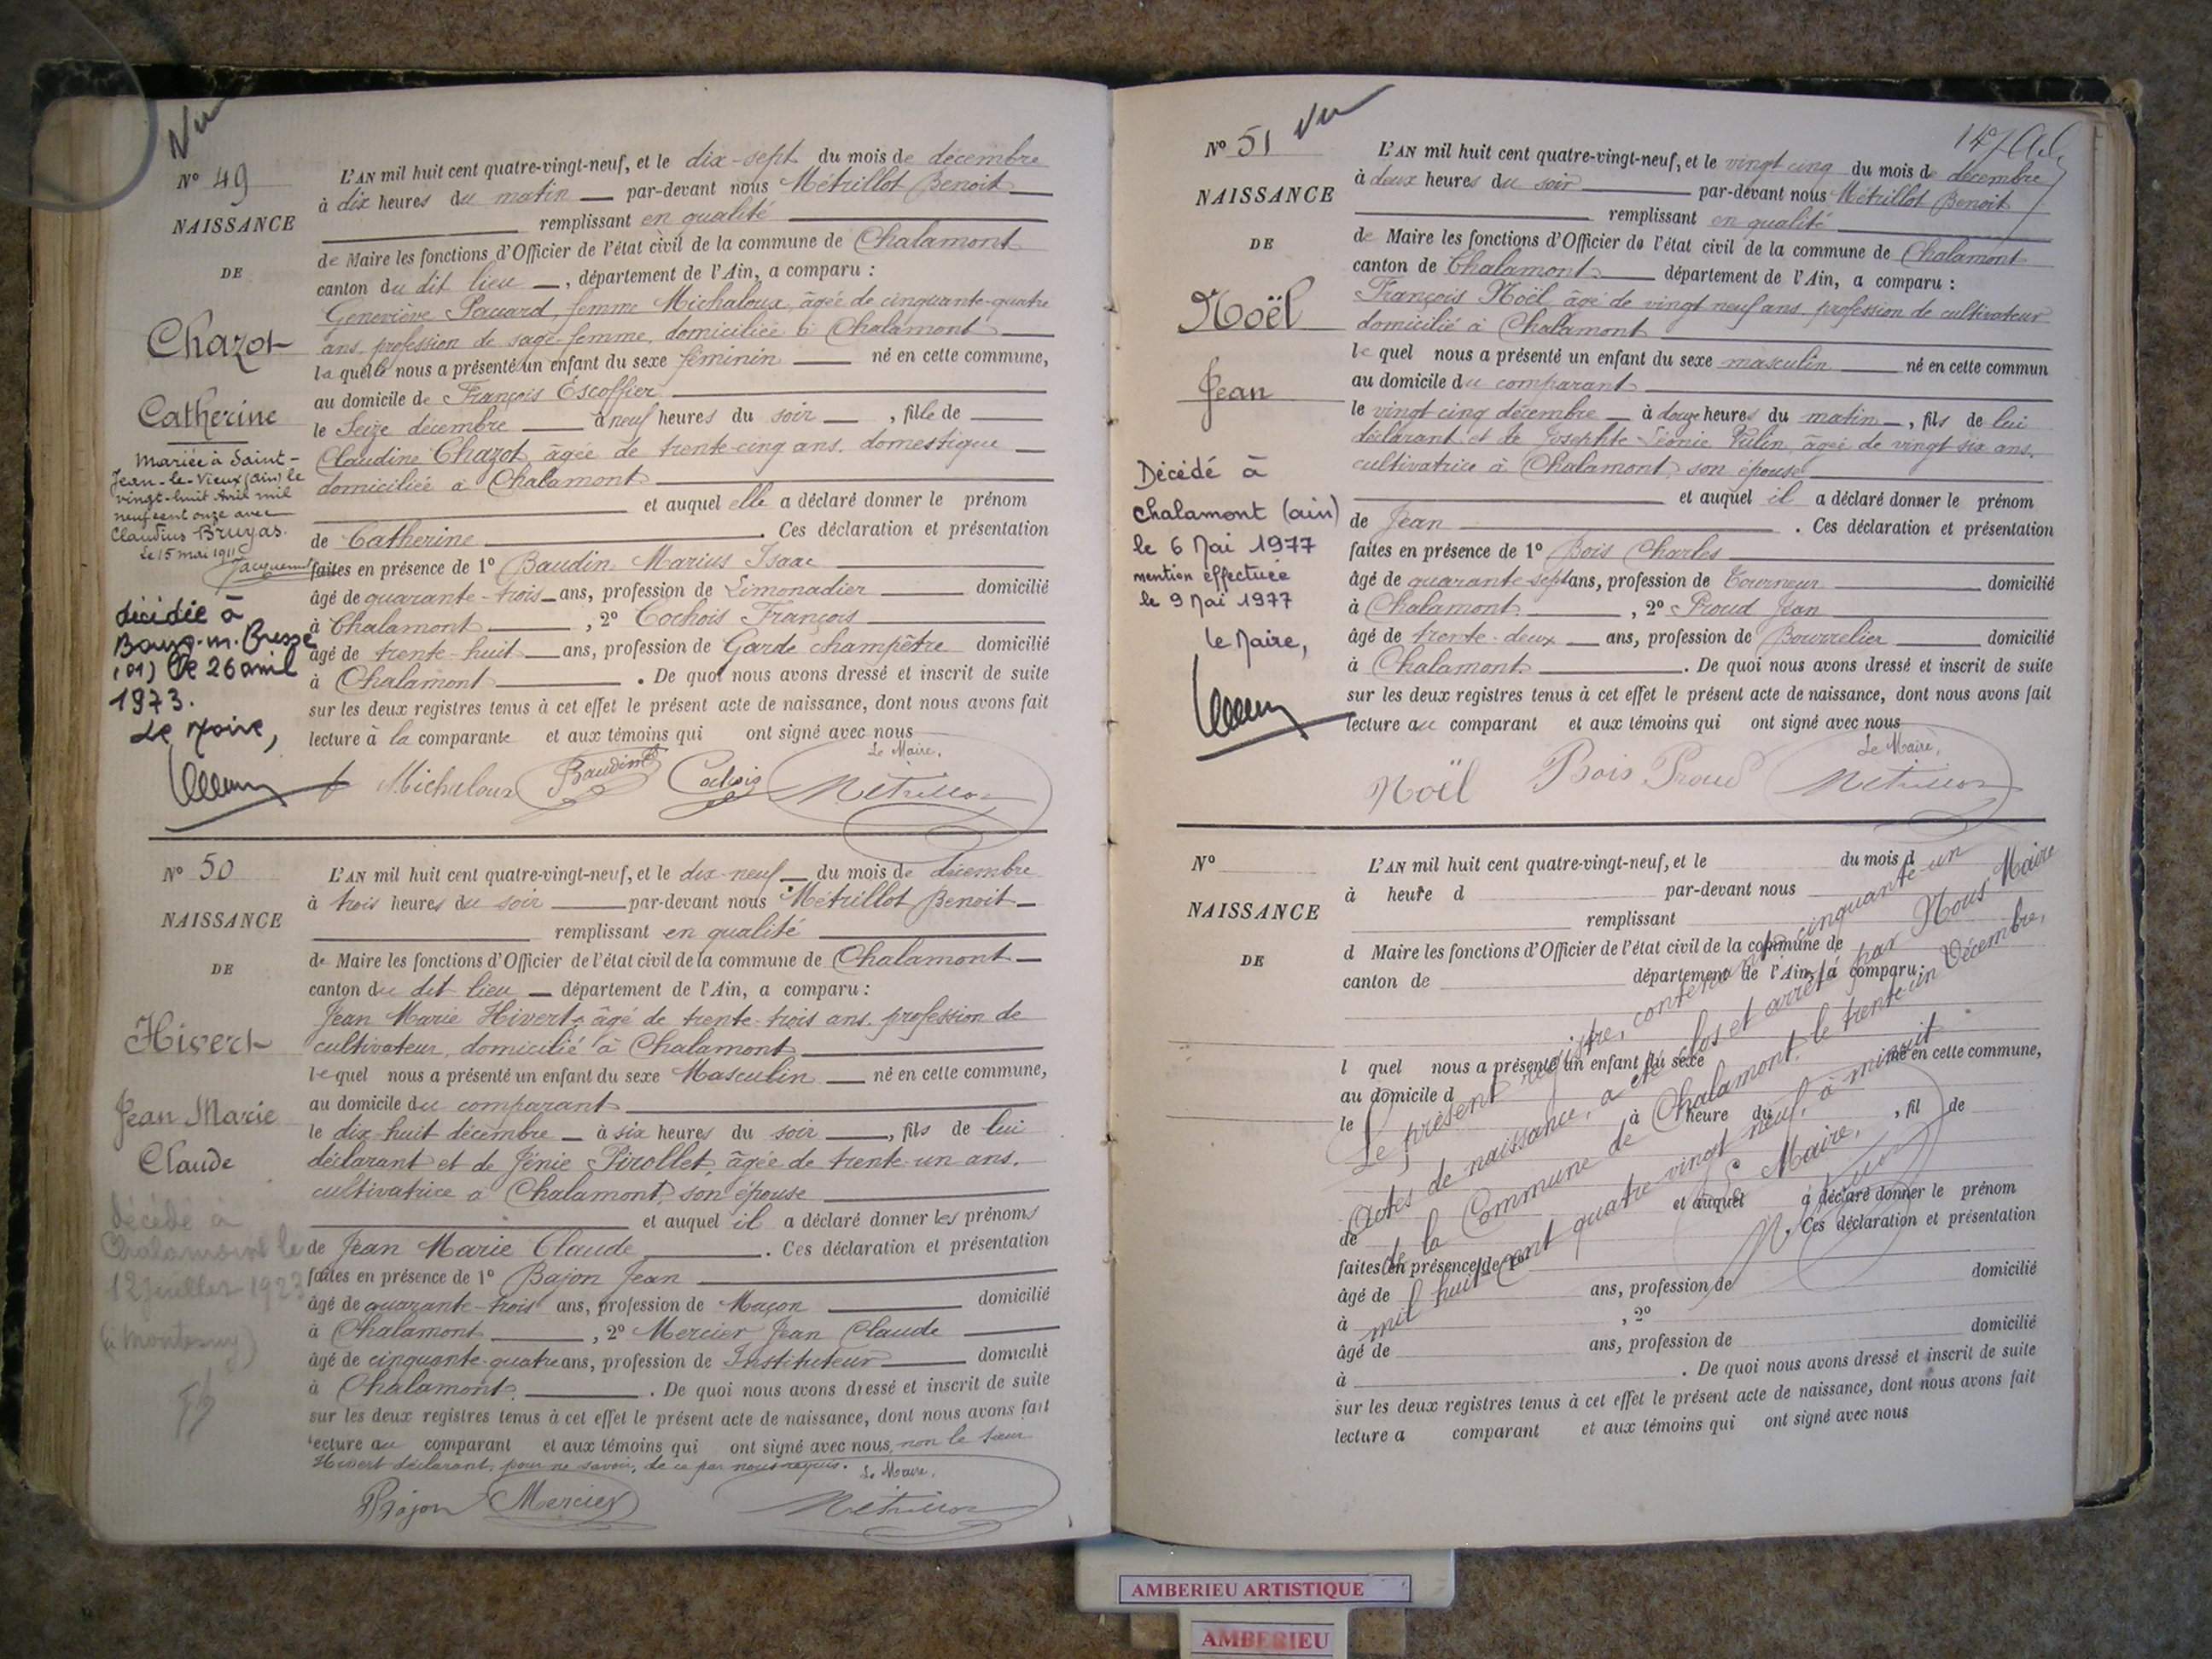 Vu
N° 49
NAISSANCE
DE
Chazot
Catherine
Mariée à Saint-
Jean-le-Vieux (Ain) le
vingt-huit Avril mil
neuf cent onze avec
Claudius Bruyas.
Le 15 mai 1911
décédée à
Bourg-en-Bresse
(01) le 26 avril
1973.
Le Maire,
L'AN mil huit cent quatre-vingt-neuf, et le dix-sept du mois de décembre
à dix heures du matin par-devant nous Métrillot Benoit
remplissant en qualité
de Maire les fonctions d'Officier de l'état civil de la commune de Chalamont
canton du dit lieu, département de l'Ain, a comparu :
Geneviève Paccard, femme Michaloux, âgée de cinquante-quatre
ans, profession de sage-femme, domiciliée à Chalamont
laquelle nous a présenté un enfant du sexe féminin né en cette commune,
au domicile de François Escoffier
le Seize décembre à neuf heures du soir, fille de
Claudine Chazot, âgée de trente-cinq ans, domestique
domiciliée à Chalamont
et auquel elle a déclaré donner le prénom
de Catherine. Ces déclaration et présentation
faites en présence de 1° Baudin Marius Isaac
âgé de quarante-trois ans, profession de Limonadier domicilié
à Chalamont, 2° Cochois François
âgé de trente-huit ans, profession de Garde champêtre domicilié
à Chalamont. De quoi nous avons dressé et inscrit de suite
sur les deux registres tenus à cet effet le présent acte de naissance, dont nous avons fait
lecture à la comparante et aux témoins qui ont signé avec nous
Le Maire,
f Michaloux Baudin Cochois Métrillot
N° 50
NAISSANCE
DE
Hivert
Jean Marie
Claude
décédé à
Chalamont le
12 juillet 1923
L'AN mil huit cent quatre-vingt-neuf, et le dix-neuf du mois de décembre
à trois heures du soir par-devant nous Métrillot Benoit
remplissant en qualité
de Maire les fonctions d'Officier de l'état civil de la commune de Chalamont
canton du dit lieu département de l'Ain, a comparu :
Jean Marie Hivert, âgé de trente-trois ans, profession de
cultivateur, domicilié à Chalamont
lequel nous a présenté un enfant du sexe Masculin né en cette commune,
au domicile du comparant
le dix-huit décembre à six heures du soir, fils de lui
déclarant et de Jénie Pirollet, âgée de trente-un ans,
cultivatrice à Chalamont, son épouse
et auquel il a déclaré donner les prénoms
de Jean Marie Claude. Ces déclaration et présentation
faites en présence de 1° Bajon Jean
âgé de quarante-trois ans, profession de Maçon domicilié
à Chalamont, 2° Mercier Jean Claude
âgé de cinquante-quatre ans, profession de Instituteur domicilié
à Chalamont. De quoi nous avons dressé et inscrit de suite
sur les deux registres tenus à cet effet le présent acte de naissance, dont nous avons fait
lecture au comparant et aux témoins qui ont signé avec nous, non le sieur
Hivert déclarant, pour ne savoir, de ce par nous requis.
Le Maire,
Bajon Mercier Métrillot
Vu
N° 51
NAISSANCE
DE
Noël
Jean
Décédé à
Chalamont (ain)
le 6 Mai 1977
mention effectuée
le 9 Mai 1977
le Maire,
L'AN mil huit cent quatre-vingt-neuf, et le vingt cinq du mois de décembre
à deux heures du soir par-devant nous Métrillot Benoit
remplissant en qualité
de Maire les fonctions d'Officier de l'état civil de la commune de Chalamont
canton de Chalamont département de l'Ain, a comparu :
François Noël, âgé de vingt neuf ans, profession de cultivateur
domicilié à Chalamont
lequel nous a présenté un enfant du sexe masculin né en cette commun
au domicile du comparant
le vingt cinq décembre à douze heures du matin, fils de lui
déclarant et de Josephte Léonie Vulin, âgée de vingt-six ans,
cultivatrice à Chalamont, son épouse
et auquel il a déclaré donner le prénom
de Jean. Ces déclaration et présentation
faites en présence de 1° Bois Charles
âgé de quarante-sept ans, profession de Tourneur domicilié
à Chalamont, 2° Proud Jean
âgé de trente-deux ans, profession de Bourrelier domicilié
à Chalamont. De quoi nous avons dressé et inscrit de suite
sur les deux registres tenus à cet effet le présent acte de naissance, dont nous avons fait
lecture au comparant et aux témoins qui ont signé avec nous
Le Maire,
Noël Bois Proud Métrillot
N°
NAISSANCE
DE
L'AN mil huit cent quatre-vingt-neuf, et le du mois d
à heure d par-devant nous
remplissant
d Maire les fonctions d'Officier de l'état civil de la commune de
canton de département de l'Ain, a comparu :
l quel nous a présenté un enfant du sexe né en cette commune,
au domicile d
le à heure du, fil de
et auquel a déclaré donner le prénom
de. Ces déclaration et présentation
faites en présence de 1°
âgé de ans, profession de domicilié
à, 2°
âgé de ans, profession de domicilié
à. De quoi nous avons dressé et inscrit de suite
sur les deux registres tenus à cet effet le présent acte de naissance, dont nous avons fait
lecture a comparant et aux témoins qui ont signé avec nous
Le présent registre, contenant cinquante-un
Actes de naissance, a été clos et arrêté par Nous Maire
de la Commune de Chalamont, le trente-un Décembre,
mil huit-cent quatre vingt neuf, à minuit.
Le Maire,
AMBERIEU ARTISTIQUE
AMBERIEU